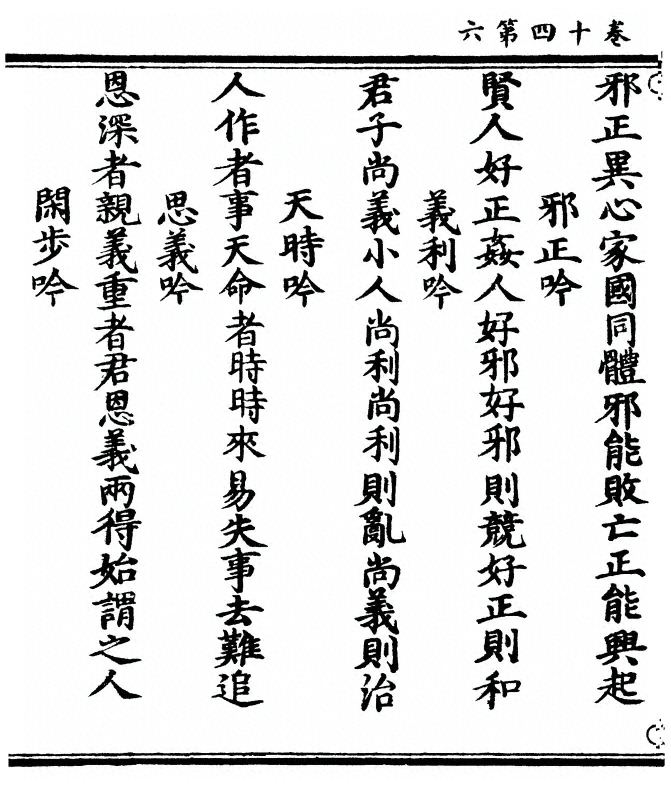 卷十四第六
邪正異心家國同體邪能敗亡正能興起
邪正吟
賢人好正姦人好邪好邪則競好正則和
義利吟
君子尚義小人尚利尚利則亂尚義則治
天時吟
人作者事天命者時時來易失事去難追
思義吟
恩深者親義重者君恩義兩得始謂之人
閑步吟